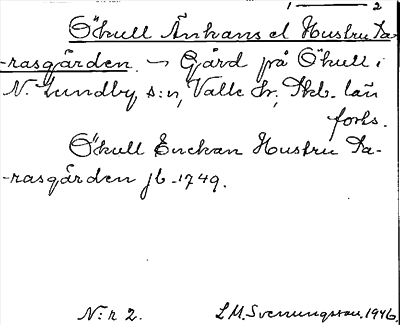 1 — 2
Ökull Änkans el Hustru Sa-
-rasgården. — Gård på Ökull i
N. Lundby s:n, Valle hr, Skb. län
forts.
Ökull Enckan Hustru Sa-
-rasgården jb. 1749.
N:r 2. L.M. Svenungsson. 1946.